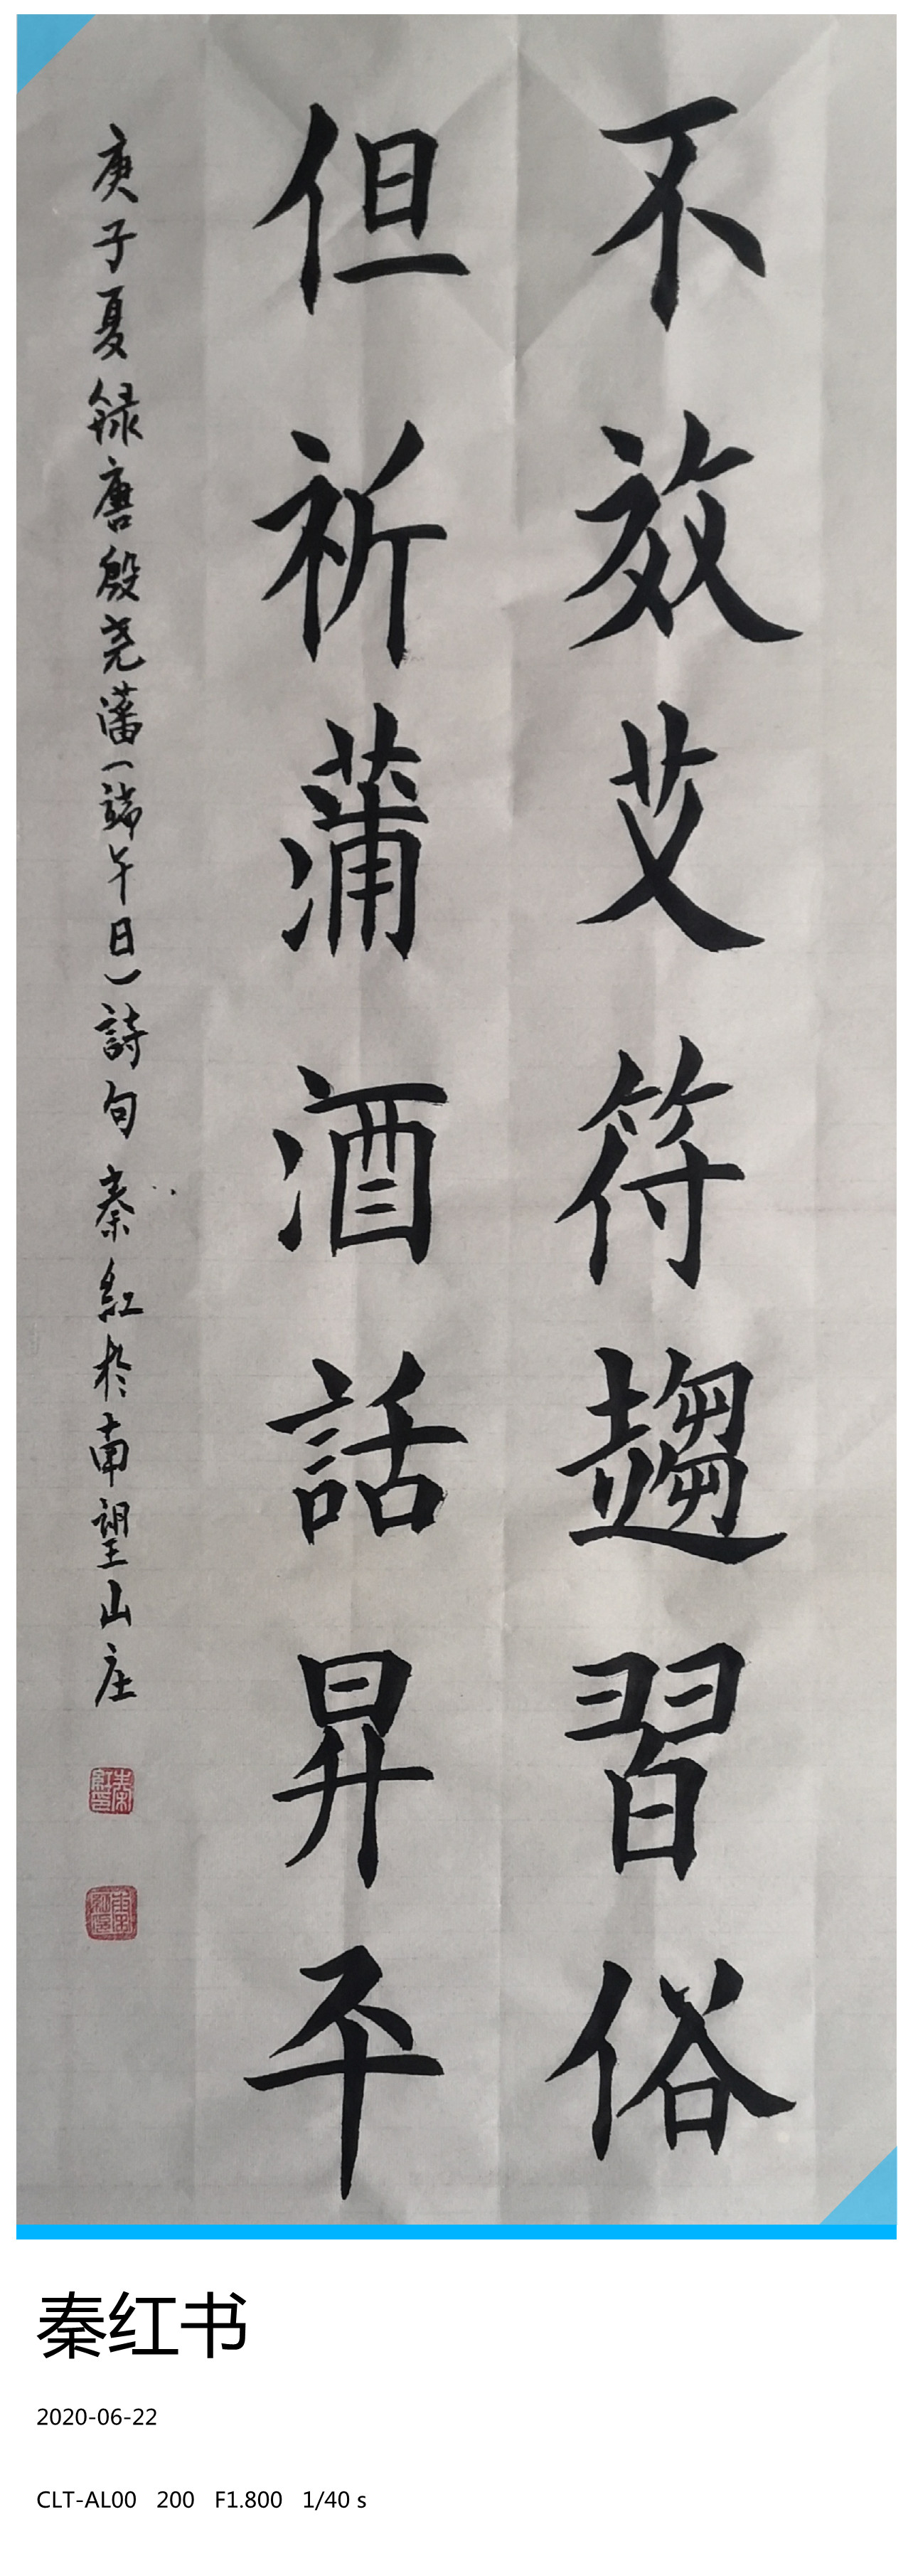 不效艾符趨習俗
但祈蒲酒話昇平
庚子夏録唐殷尧藩(端午日)詩句秦紅於南望山庄
秦红书
2020-06-22
CLT-AL00 200 F1.800 1/40 s